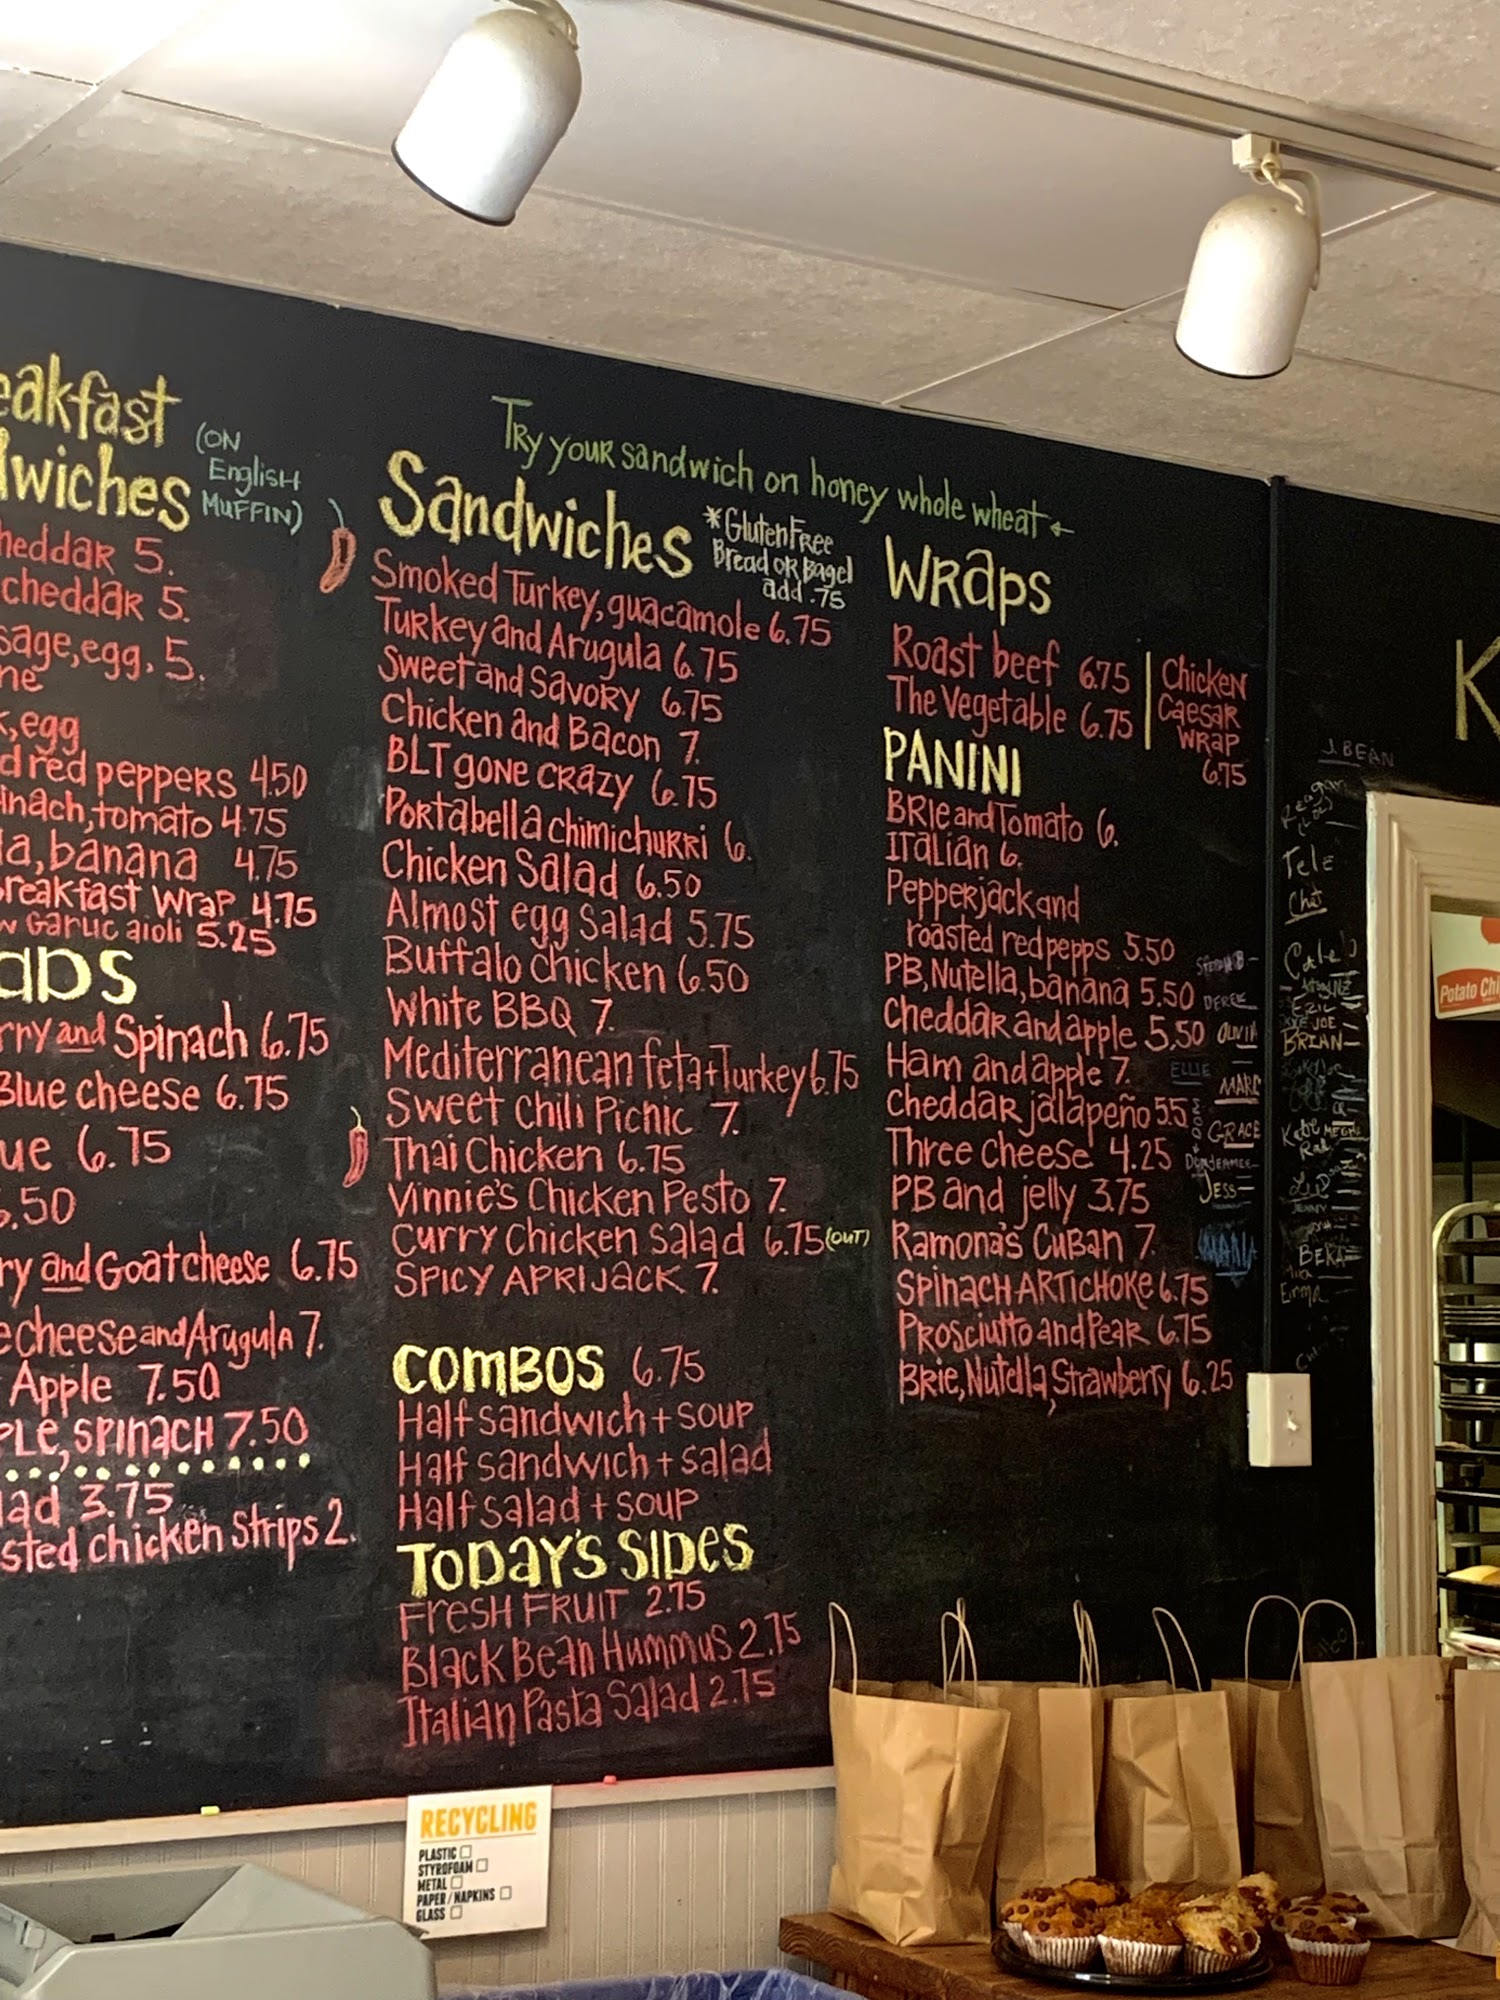 eakfast
dwiches
(ON
English
MUFFIN)
heddar 5.
cheddar 5.
sage, egg, 5.
ne
k, egg
d red peppers 4.50
inach, tomato 4.75
la, banana 4.75
breakfast wrap 4.75
w garlic aioli 5.25
ads
rry and Spinach 6.75
Blue cheese 6.75
ue 6.75
6.50
ry and Goat cheese 6.75
e cheese and Arugula 7.
Apple 7.50
ple, spinach 7.50
lad 3.75
sted chicken strips 2.
Try your sandwich on honey whole wheat
Sandwiches
*Gluten Free
Bread or Bagel
add .75
Smoked Turkey, guacamole 6.75
Turkey and Arugula 6.75
Sweet and Savory 6.75
Chicken and Bacon 7.
BLT gone crazy 6.75
Portabella chimichurri 6.
Chicken Salad 6.50
Almost egg Salad 5.75
Buffalo chicken 6.50
White BBQ 7.
Mediterranean feta+Turkey 6.75
Sweet Chili Picnic 7.
Thai Chicken 6.75
Vinnie's Chicken Pesto 7.
Curry Chicken Salad 6.75 (OUT)
Spicy Aprijack 7.
COMBOS 6.75
Half sandwich + soup
Half sandwich + salad
Half salad + soup
TODAY'S SIDES
Fresh Fruit 2.75
Black Bean Hummus 2.75
Italian Pasta Salad 2.75
Wraps
Roast beef 6.75
The Vegetable 6.75
Chicken
Caesar
Wrap
6.75
PANINI
Brie and Tomato 6.
Italian 6.
Pepperjack and
roasted red pepps 5.50
PB, Nutella, banana 5.50
Cheddar and apple 5.50
Ham and apple 7.
Cheddar jalapeño 5.5
Three Cheese 4.25
PB and jelly 3.75
Ramona's Cuban 7.
Spinach Artichoke 6.75
Prosciutto and Pear 6.75
Brie, Nutella, Strawberry 6.25
DEREK
OLIVIA
ELLIE
MARC
GRACE
JESS
K
J. BEAN
Reagan
Tele
Chet
Caleb
JOE
BRIAN
JENNY
BERA
Emma
Potato Chi
RECYCLING
PLASTIC
STYROFOAM
METAL
PAPER/NAPKINS
GLASS